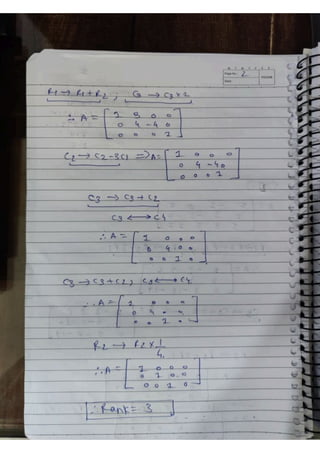 Page No. 2
Date
R1 → R1+R2 ; C3 → C3×2
∴ A = [ 1 0 0 0
0 4 -4 0
0 0 0 1 ]
C2 → C2-3C1 ⇒ A = [ 1 0 0 0
0 4 -4 0
0 0 0 1 ]
C3 → C3+C2
C3 ↔ C4
∴ A = [ 1 0 0 0
0 4 0 0
0 0 1 0 ]
C3 → C3+C2, C3 ↔ C4
∴ A = [ 1 0 0 0
0 4 0 0
0 0 1 0 ]
R2 → R2 × 1/4
∴ A = [ 1 0 0 0
0 1 0 0
0 0 1 0 ]
∴ Rank = 3